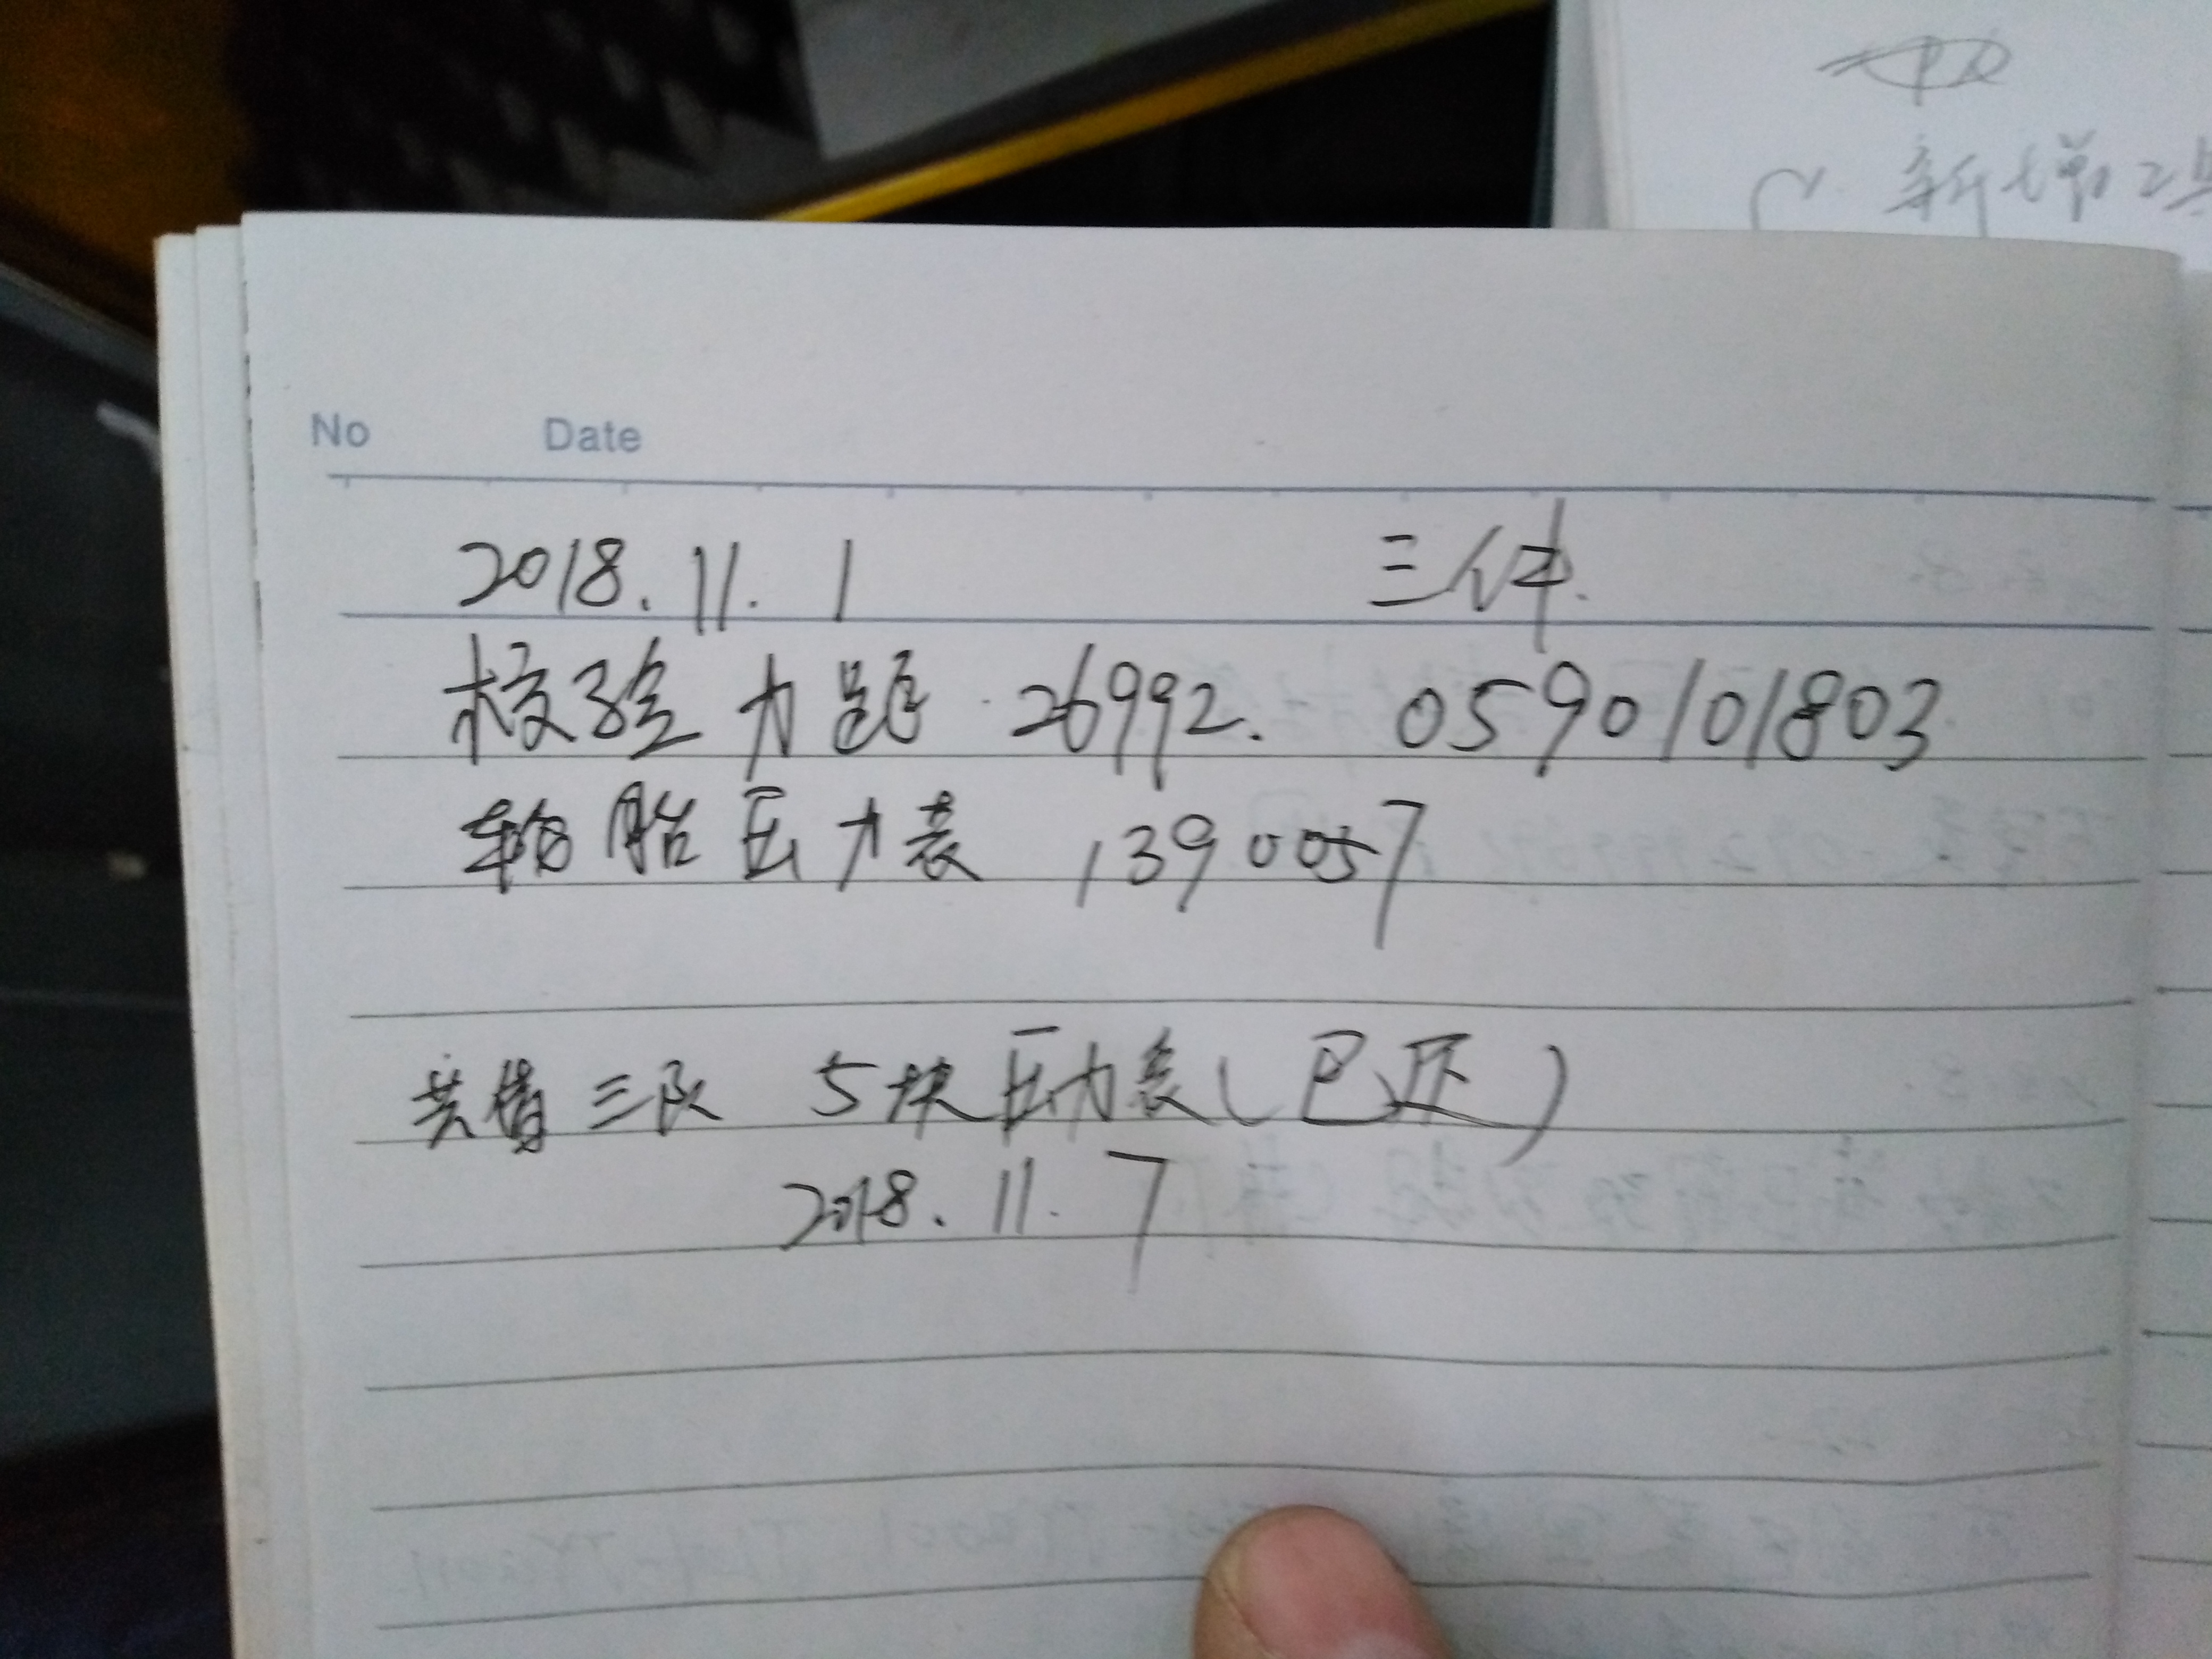 新增工具
No Date
2018.11.1 三件.
校验力距 26992. 0590101803
轮胎压力表 1390057
共借三队 5块压力表(已还)
2018.11.7